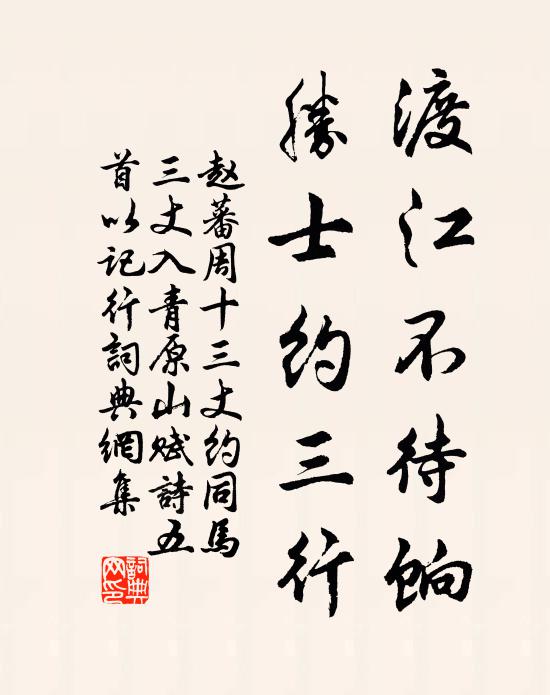 渡江不待餉
勝士約三行
赵蕃周十三丈約同馬
三丈入青原山赋詩五
首以记行詞典網集
詞典网印